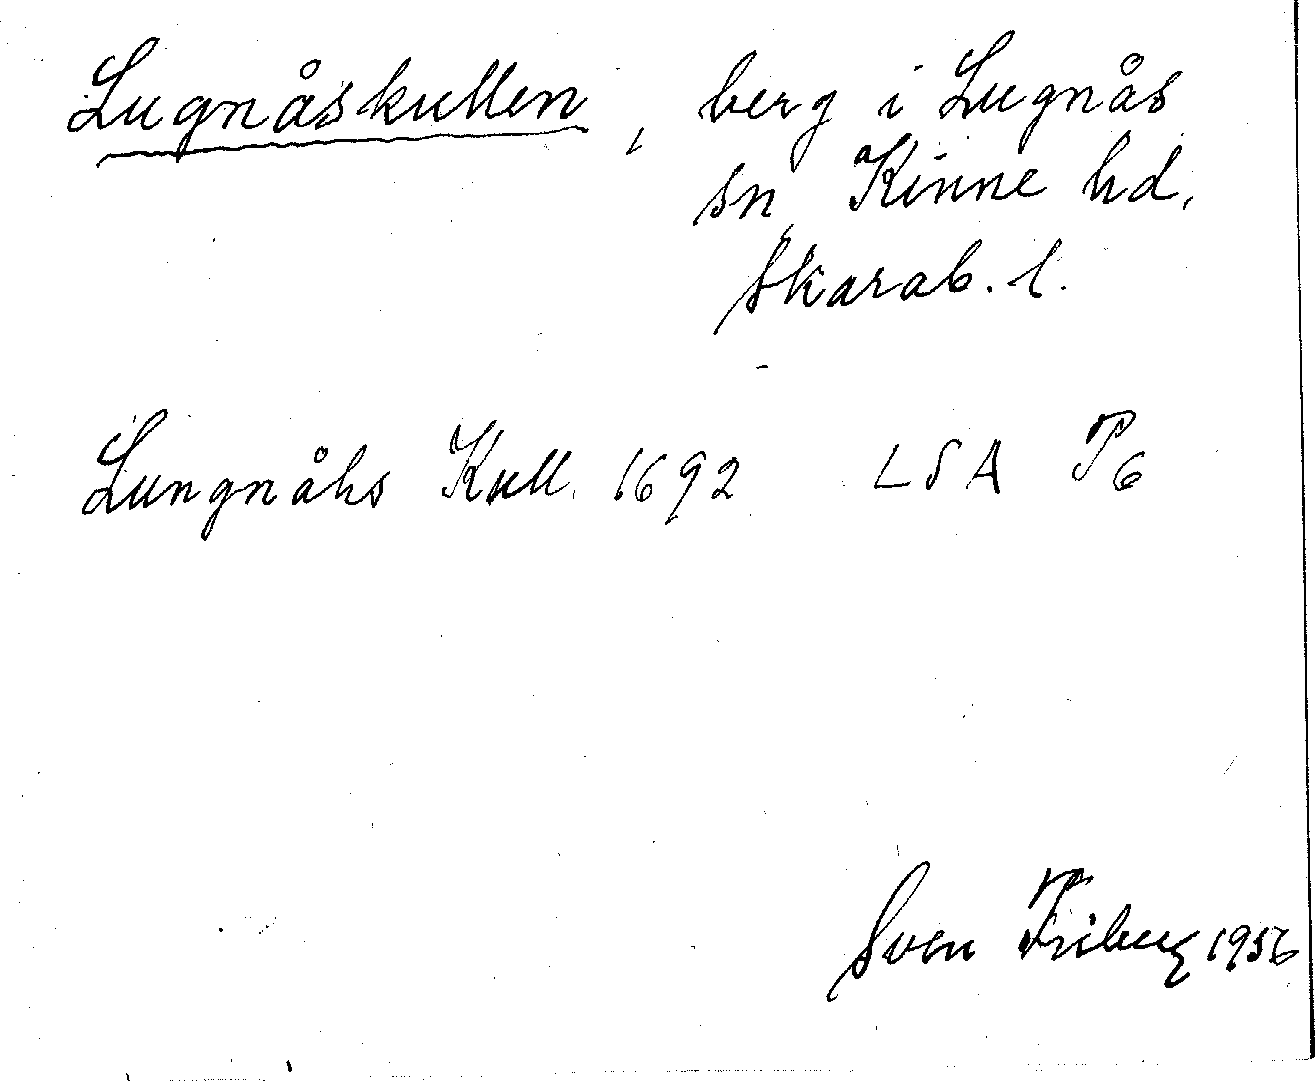 Lugnåskullen, berg i Lugnås
sn Kinne hd,
Skarab. l.
Lungnåhs Kull. 1692 LSA P6
Sven Friberg 1956